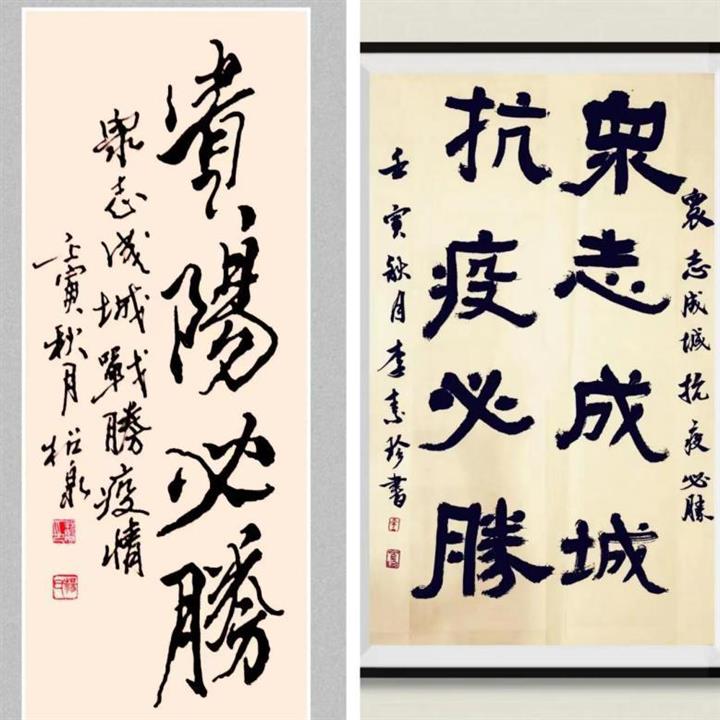 貴陽必勝
衆志成城戰勝疫情
壬寅秋月
衆志成城抗疫必勝
衆志成城
抗疫必勝
壬寅秋月李素珍書